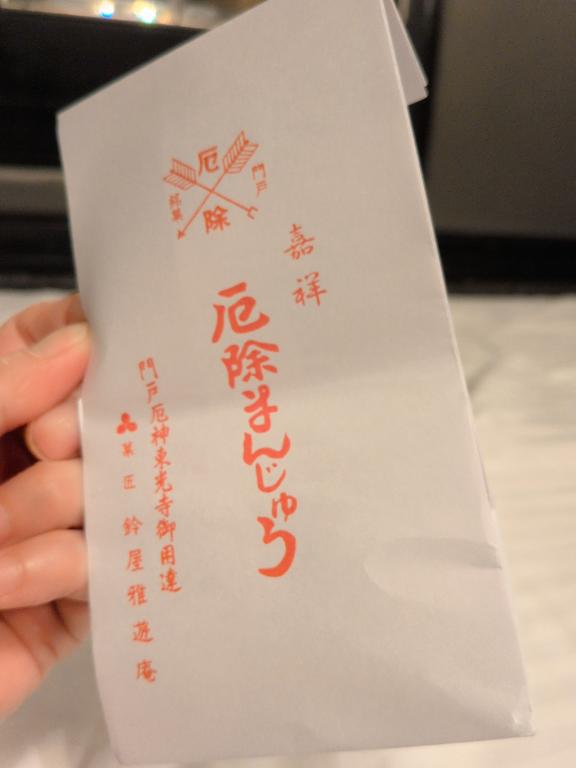 厄除
門戸
銘菓
嘉祥
厄除まんじゅう
門戸厄神東光寺御用達
菓匠 鈴屋雅遊庵